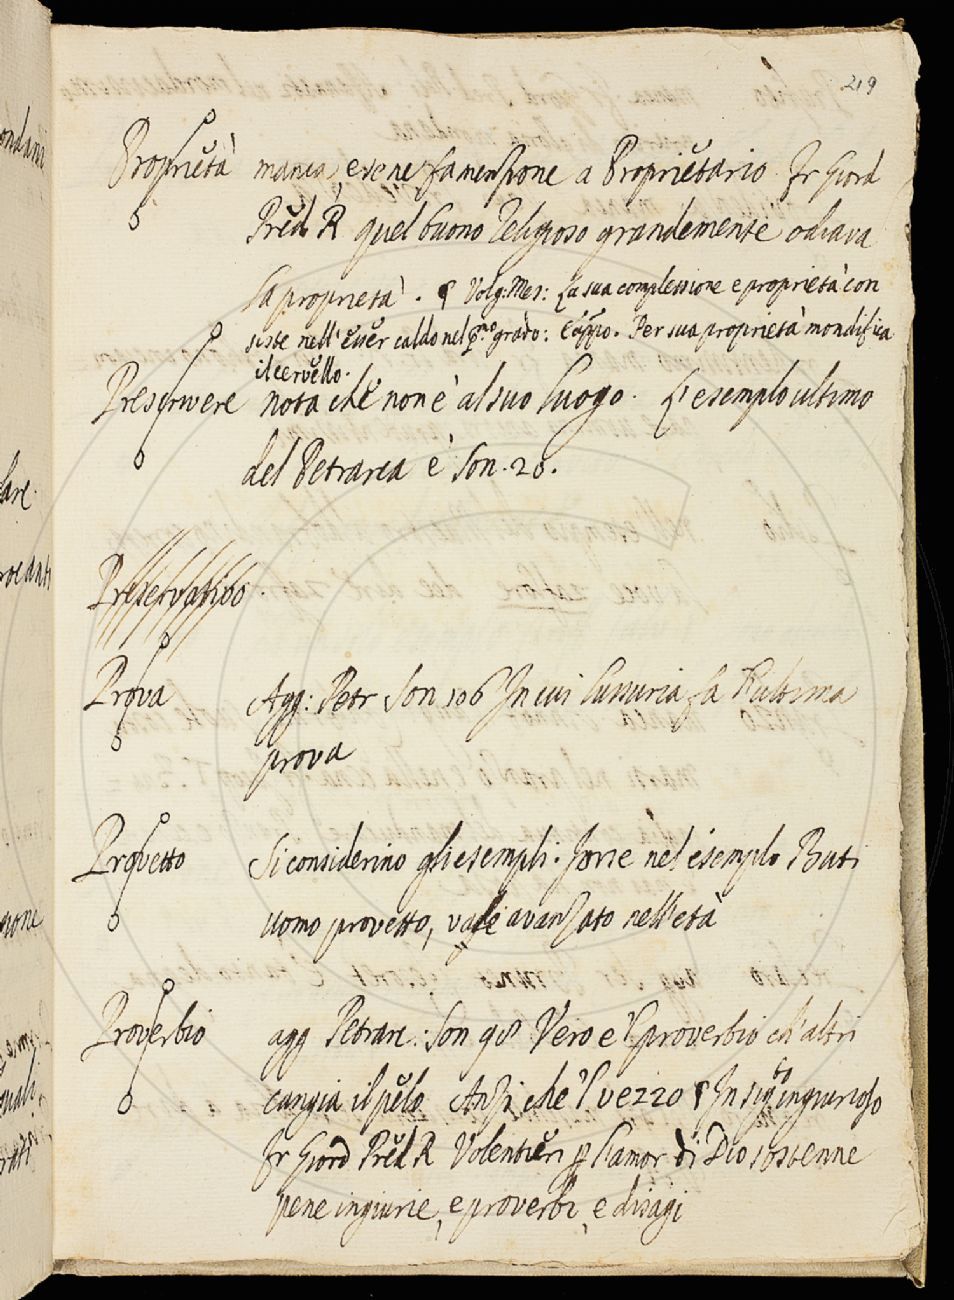 219
Proprietà manca, e se ne fa menzione a Proprietario. Fr Giord
Pred. R quel buono Religioso grandemente odiava
la proprietà. ¶ Volg: Mes: La sua complessione e proprietà con
siste nell'esser caldo nel p.mo grado: E appo. Per sua proprietà mondifica
il cervello.
Prescrivere nota che non è al suo luogo. L'esemplo ultimo
del Petrarca è Son. 28.
Preservativo.
Prova Agg: Petr Son 106 In cui lussuria fa l'ultima
prova
Provetto Si considerino gli esempli. Forse nel esemplo Buti
uomo provetto, vale avanzato nell'età
Proverbio agg Petrarc: Son 98 Vero e'l proverbio ch'altri
cangia il pelo Anzi che'l vezzo ¶ In sig.to ingiurioso
Fr Giord Pred. R Volentieri p l'amor di Dio sostenne
pene ingiurie, e proverbi, e disagi